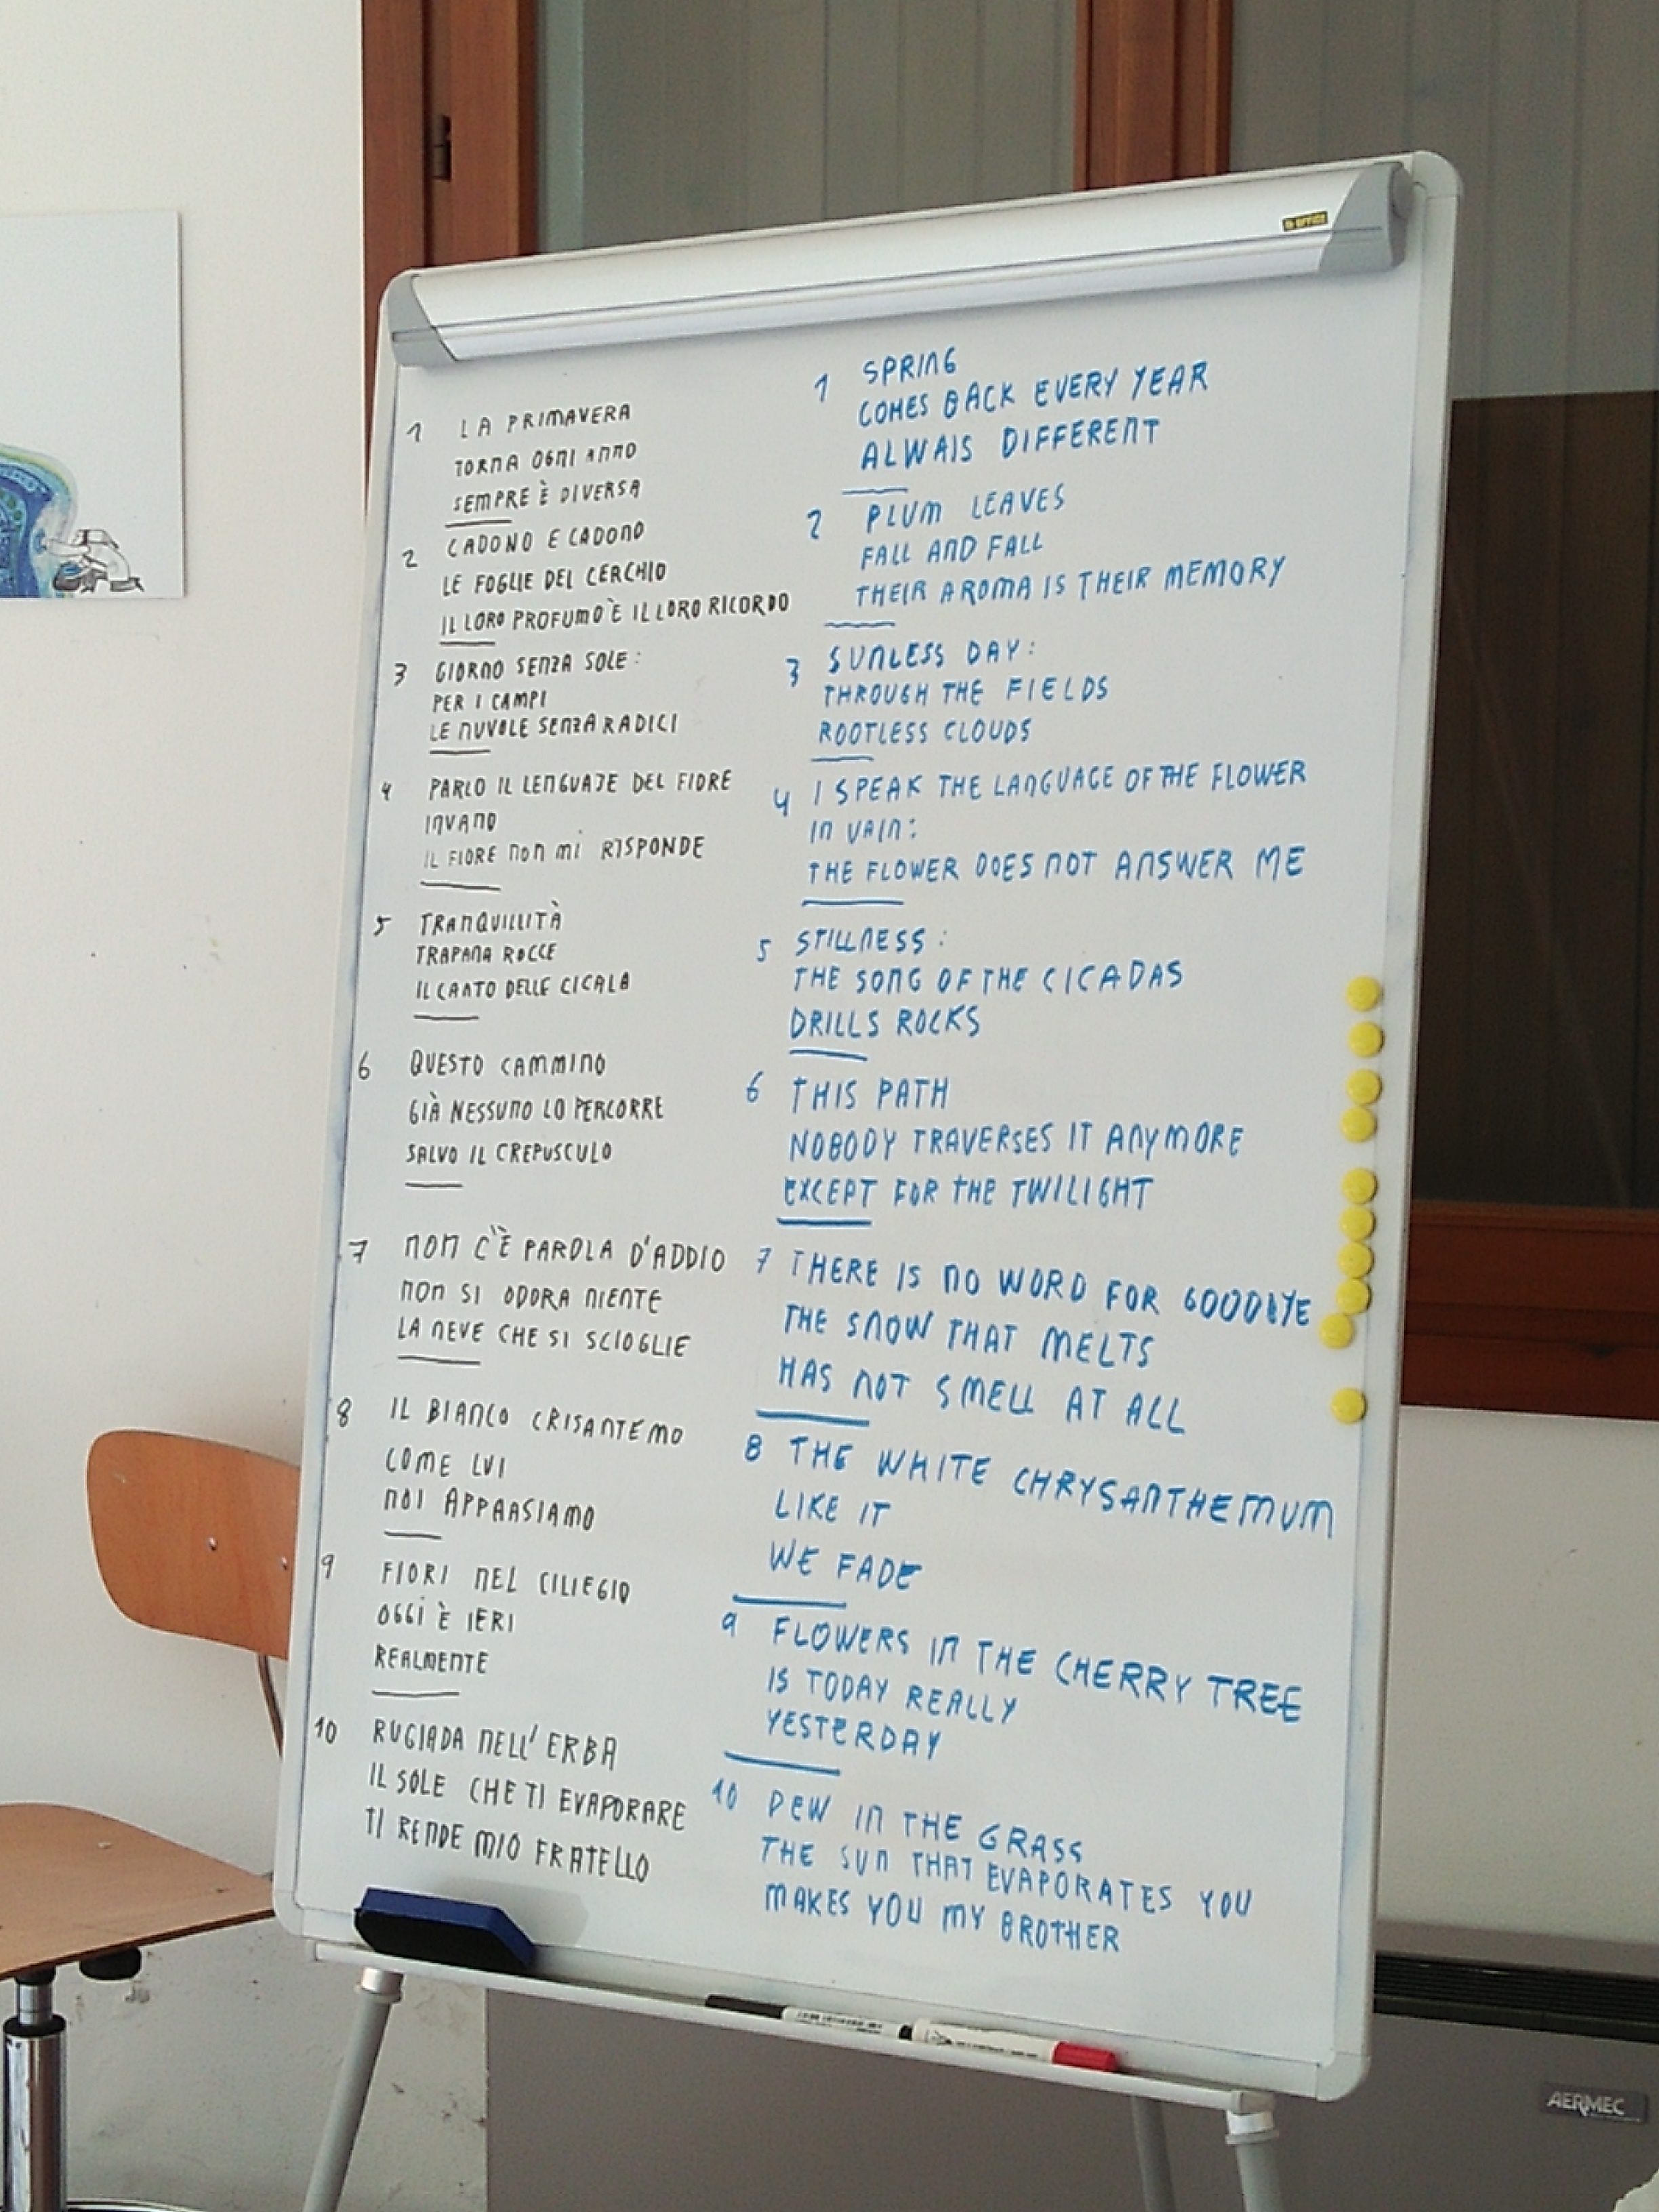 1 LA PRIMAVERA
TORNA OGNI ANNO
SEMPRE È DIVERSA
2 CADONO E CADONO
LE FOGLIE DEL CERCHIO
IL LORO PROFUMO È IL LORO RICORDO
3 GIORNO SENZA SOLE:
PER I CAMPI
LE NUVOLE SENZA RADICI
4 PARLO IL LENGUAJE DEL FIORE
INVANO
IL FIORE NON MI RISPONDE
5 TRANQUILLITÀ
TRAPANA ROCCE
IL CANTO DELLE CICALA
6 QUESTO CAMMINO
GIÀ NESSUNO LO PERCORRE
SALVO IL CREPUSCULO
7 NON C'È PAROLA D'ADDIO
NON SI ODORA NIENTE
LA NEVE CHE SI SCIOGLIE
8 IL BIANCO CRISANTEMO
COME LUI
NOI APPAASIAMO
9 FIORI NEL CILIEGIO
OGGI È IERI
REALMENTE
10 RUGIADA NELL' ERBA
IL SOLE CHE TI EVAPORARE
TI RENDE MIO FRATELLO
1 SPRING
COMES BACK EVERY YEAR
ALWAIS DIFFERENT
2 PLUM LEAVES
FALL AND FALL
THEIR AROMA IS THEIR MEMORY
3 SUNLESS DAY:
THROUGH THE FIELDS
ROOTLESS CLOUDS
4 I SPEAK THE LANGUAGE OF THE FLOWER
IN VAIN:
THE FLOWER DOES NOT ANSWER ME
5 STILLNESS:
THE SONG OF THE CICADAS
DRILLS ROCKS
6 THIS PATH
NOBODY TRAVERSES IT ANYMORE
EXCEPT FOR THE TWILIGHT
7 THERE IS NO WORD FOR GOODBYE
THE SNOW THAT MELTS
HAS NOT SMELL AT ALL
8 THE WHITE CHRYSANTHEMUM
LIKE IT
WE FADE
9 FLOWERS IN THE CHERRY TREE
IS TODAY REALLY
YESTERDAY
10 DEW IN THE GRASS
THE SUN THAT EVAPORATES YOU
MAKES YOU MY BROTHER
OFFICE
AERMEC